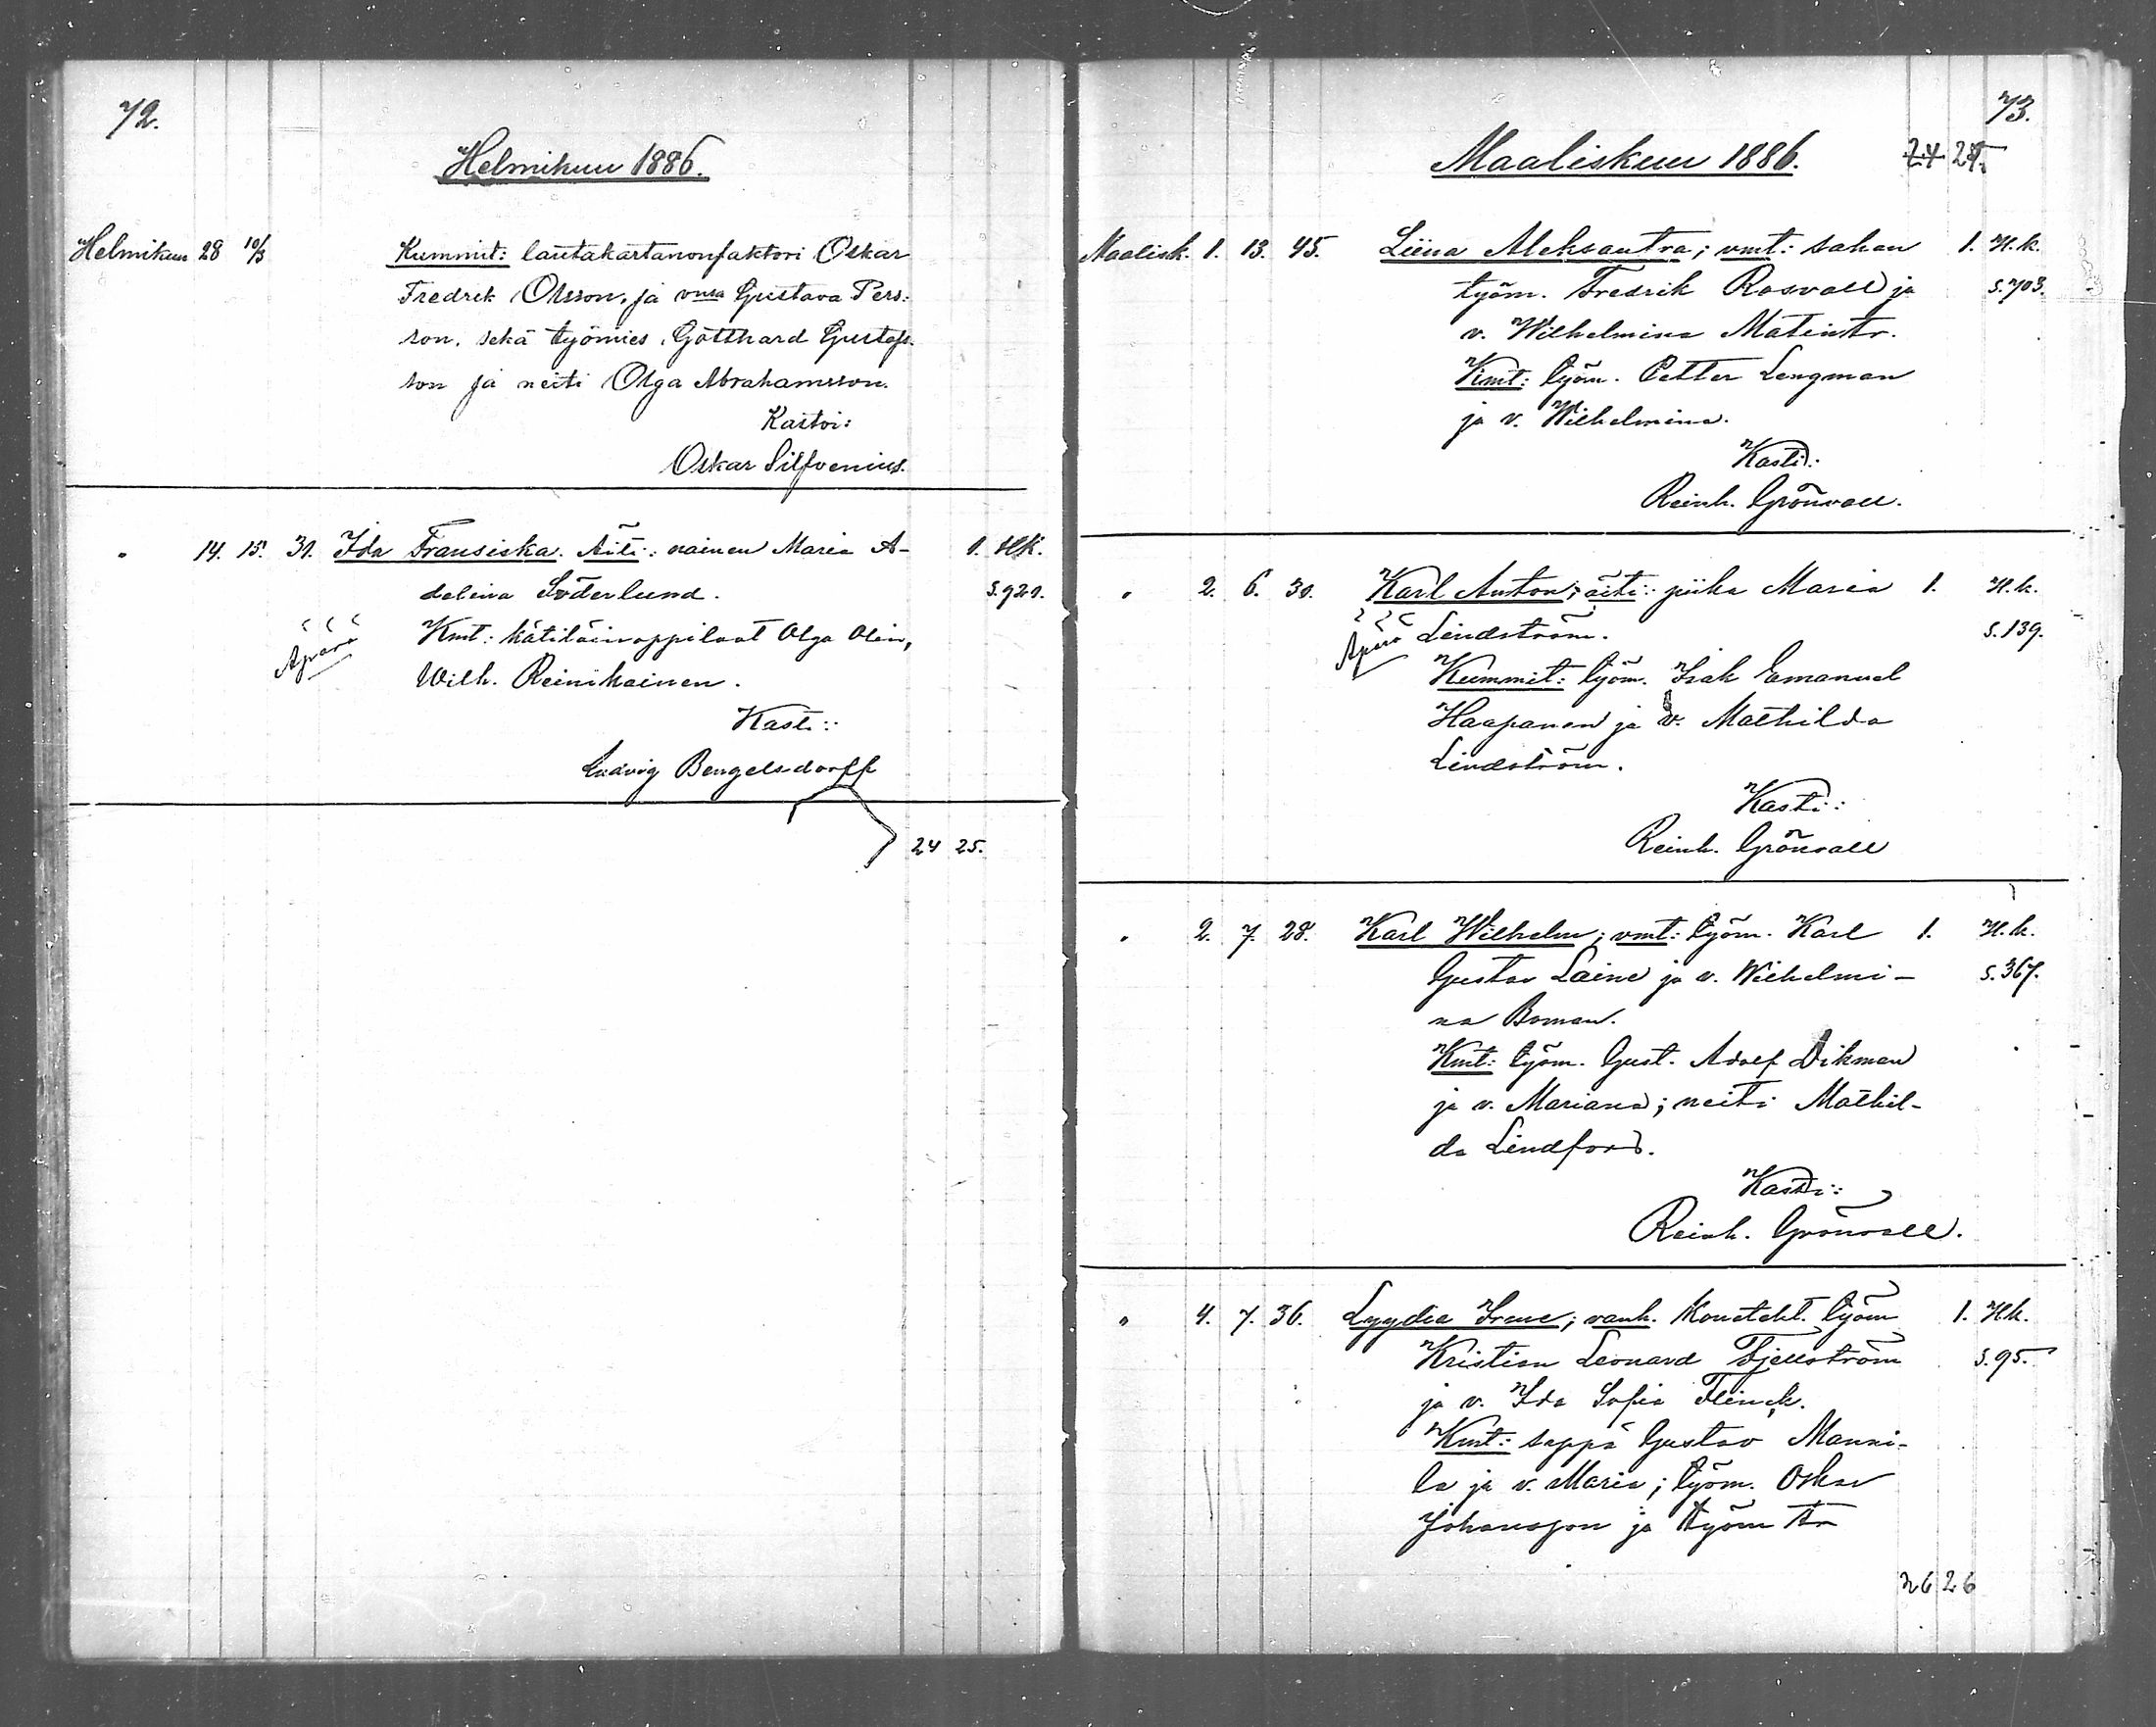 72.
Helmikuu 1886.
Helmikuu 28 10/3 Kummit: lautakartanonfaktori Oskar
Fredrik Olsson, ja vmsa Gustava Pers:
son, sekä työmies Gotthard Gustafs:
son ja neiti Olga Abrahamsson.
Kastoi:
Oskar Silfvenius.
" 14. 15. 31. Ida Fransiska. Äiti: nainen Maria A- 1. HK.
delina Söderlund. S. 921.
Äpärä Kmt: kätilöinoppilaat Olga Olin,
Wilh. Reinikainen.
Kasti:
Ludvig Bengelsdorff
24 25.
73.
Maaliskuu 1886. 24 25.
Maalisk. 1. 13. 45. Liina Aleksantra; vmt: sahan 1. H.k.
työm. Fredrik Rosvall ja S. 703.
v. Wilhelmina Matintr.
Kmt: työm. Petter Lengman
ja v. Wilhelmina.
Kasti:
Reinh. Grönvall.
" 2. 6. 30. Karl Anton; äiti: piika Maria 1. H.k.
Äpärä Lindström. S. 139.
Kummit: työm. Isak Emanuel
Haapanen ja v. Mathilda
Lindström.
Kasti:
Reinh. Grönvall
" 2. 7. 28. Karl Wilhelm; vmt: työm. Karl 1. H.k.
Gustav Laine ja v. Wilhelmi-
S. 367.
na Boman.
Kmt: työm. Gust. Adolf Dikman
ja v. Mariana; neiti Mathil-
da Lindfors.
Kasti:
Reinh. Grönvall.
" 4. 7. 36. Lyydia Irene; vanh. Koneteht. työm 1. Hk.
Kristian Leonard Fjellström S. 95.
ja v. Ida Sofia Flinck.
Kmt: seppä Gustav Manni-
la ja v. Maria; työm. Oskar
Johansson ja työm tr
26 26